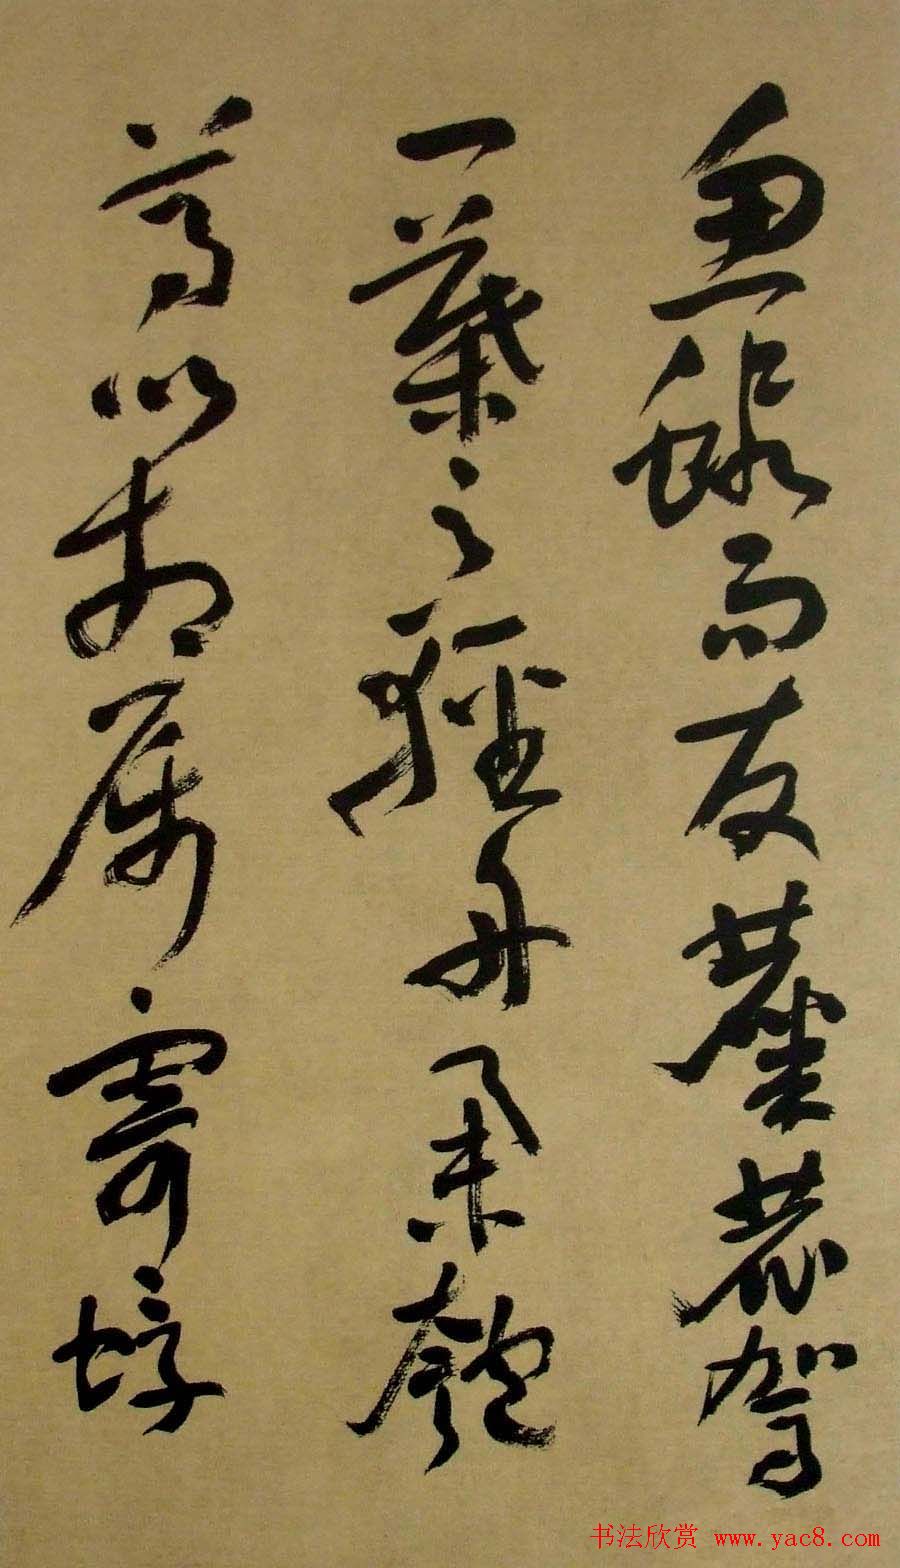 魚蝦而友麋鹿駕
一葉之輕舟舉匏
尊以相属寄蜉
书法欣赏 www.yac8.com